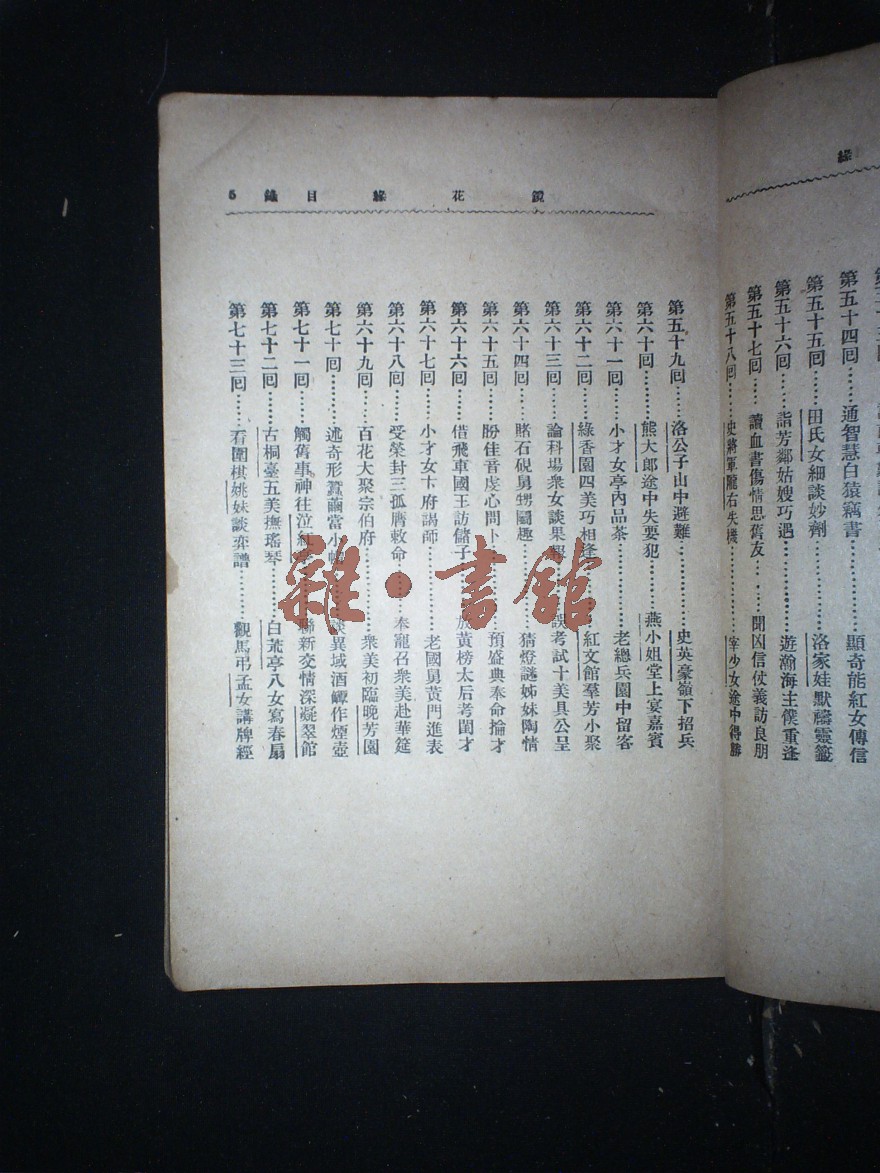 緣
第五十四回……通智慧白猿竊書……顯奇能紅女傳信
第五十五回……田氏女細談妙劑……洛家娃默禱靈籤
第五十六回……詣芳鄰姑嫂巧遇……遊瀚海主僕重逢
第五十七回……讀血書傷情思舊友……聞凶信仗義訪良朋
第五十八回……史將軍隴右失機……宰少女途中得勝
鏡花緣 目錄 5
第五十九回……洛公子山中避難……史英豪嶺下招兵
第六十回……熊大郎途中失要犯……燕小姐堂上宴嘉賓
第六十一回……小才女亭內品茶……老總兵園中留客
第六十二回……綠香園四美巧相逢……紅文館羣芳小聚
第六十三回……論科場衆女談果報……誤考試十美具公呈
第六十四回……賭石硯舅甥鬭趣……猜燈謎姊妹陶情
第六十五回……盼佳音虔心問卜……預盛典奉命掄才
第六十六回……借飛車國王訪儲子……放黃榜太后考閨才
第六十七回……小才女卞府謁師……老國舅黃門進表
第六十八回……受榮封三孤膺敕命……奉寵召衆美赴華筵
第六十九回……百花大聚宗伯府……衆美初臨晚芳園
第七十回……述奇形蠶繭當小帽……談異域酒罈作煙壺
第七十一回……觸舊事神往泣紅……聯新交情深凝翠館
第七十二回……古桐臺五美撫瑤琴……白荒亭八女寫春扇
第七十三回……看圍棋姚妹談弈譜……觀馬弔孟女講牌經
雜·書館